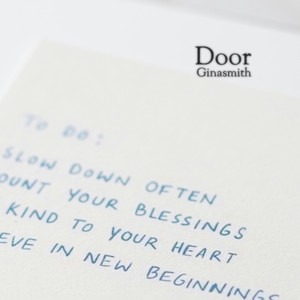 Door
Ginasmith
TO DO:
SLOW DOWN OFTEN
OUNT YOUR BLESSINGS
KIND TO YOUR HEART
EVE IN NEW BEGINNINGS